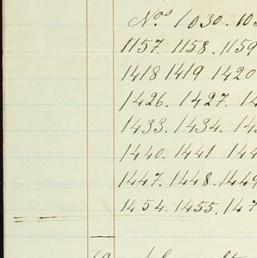 Nos 1030. 103
1157. 1158. 1159
1418 1419 1420
1426. 1427. 14
1433. 1434. 14
1440. 1441 144
1447. 1448. 1449
1454. 1455. 147